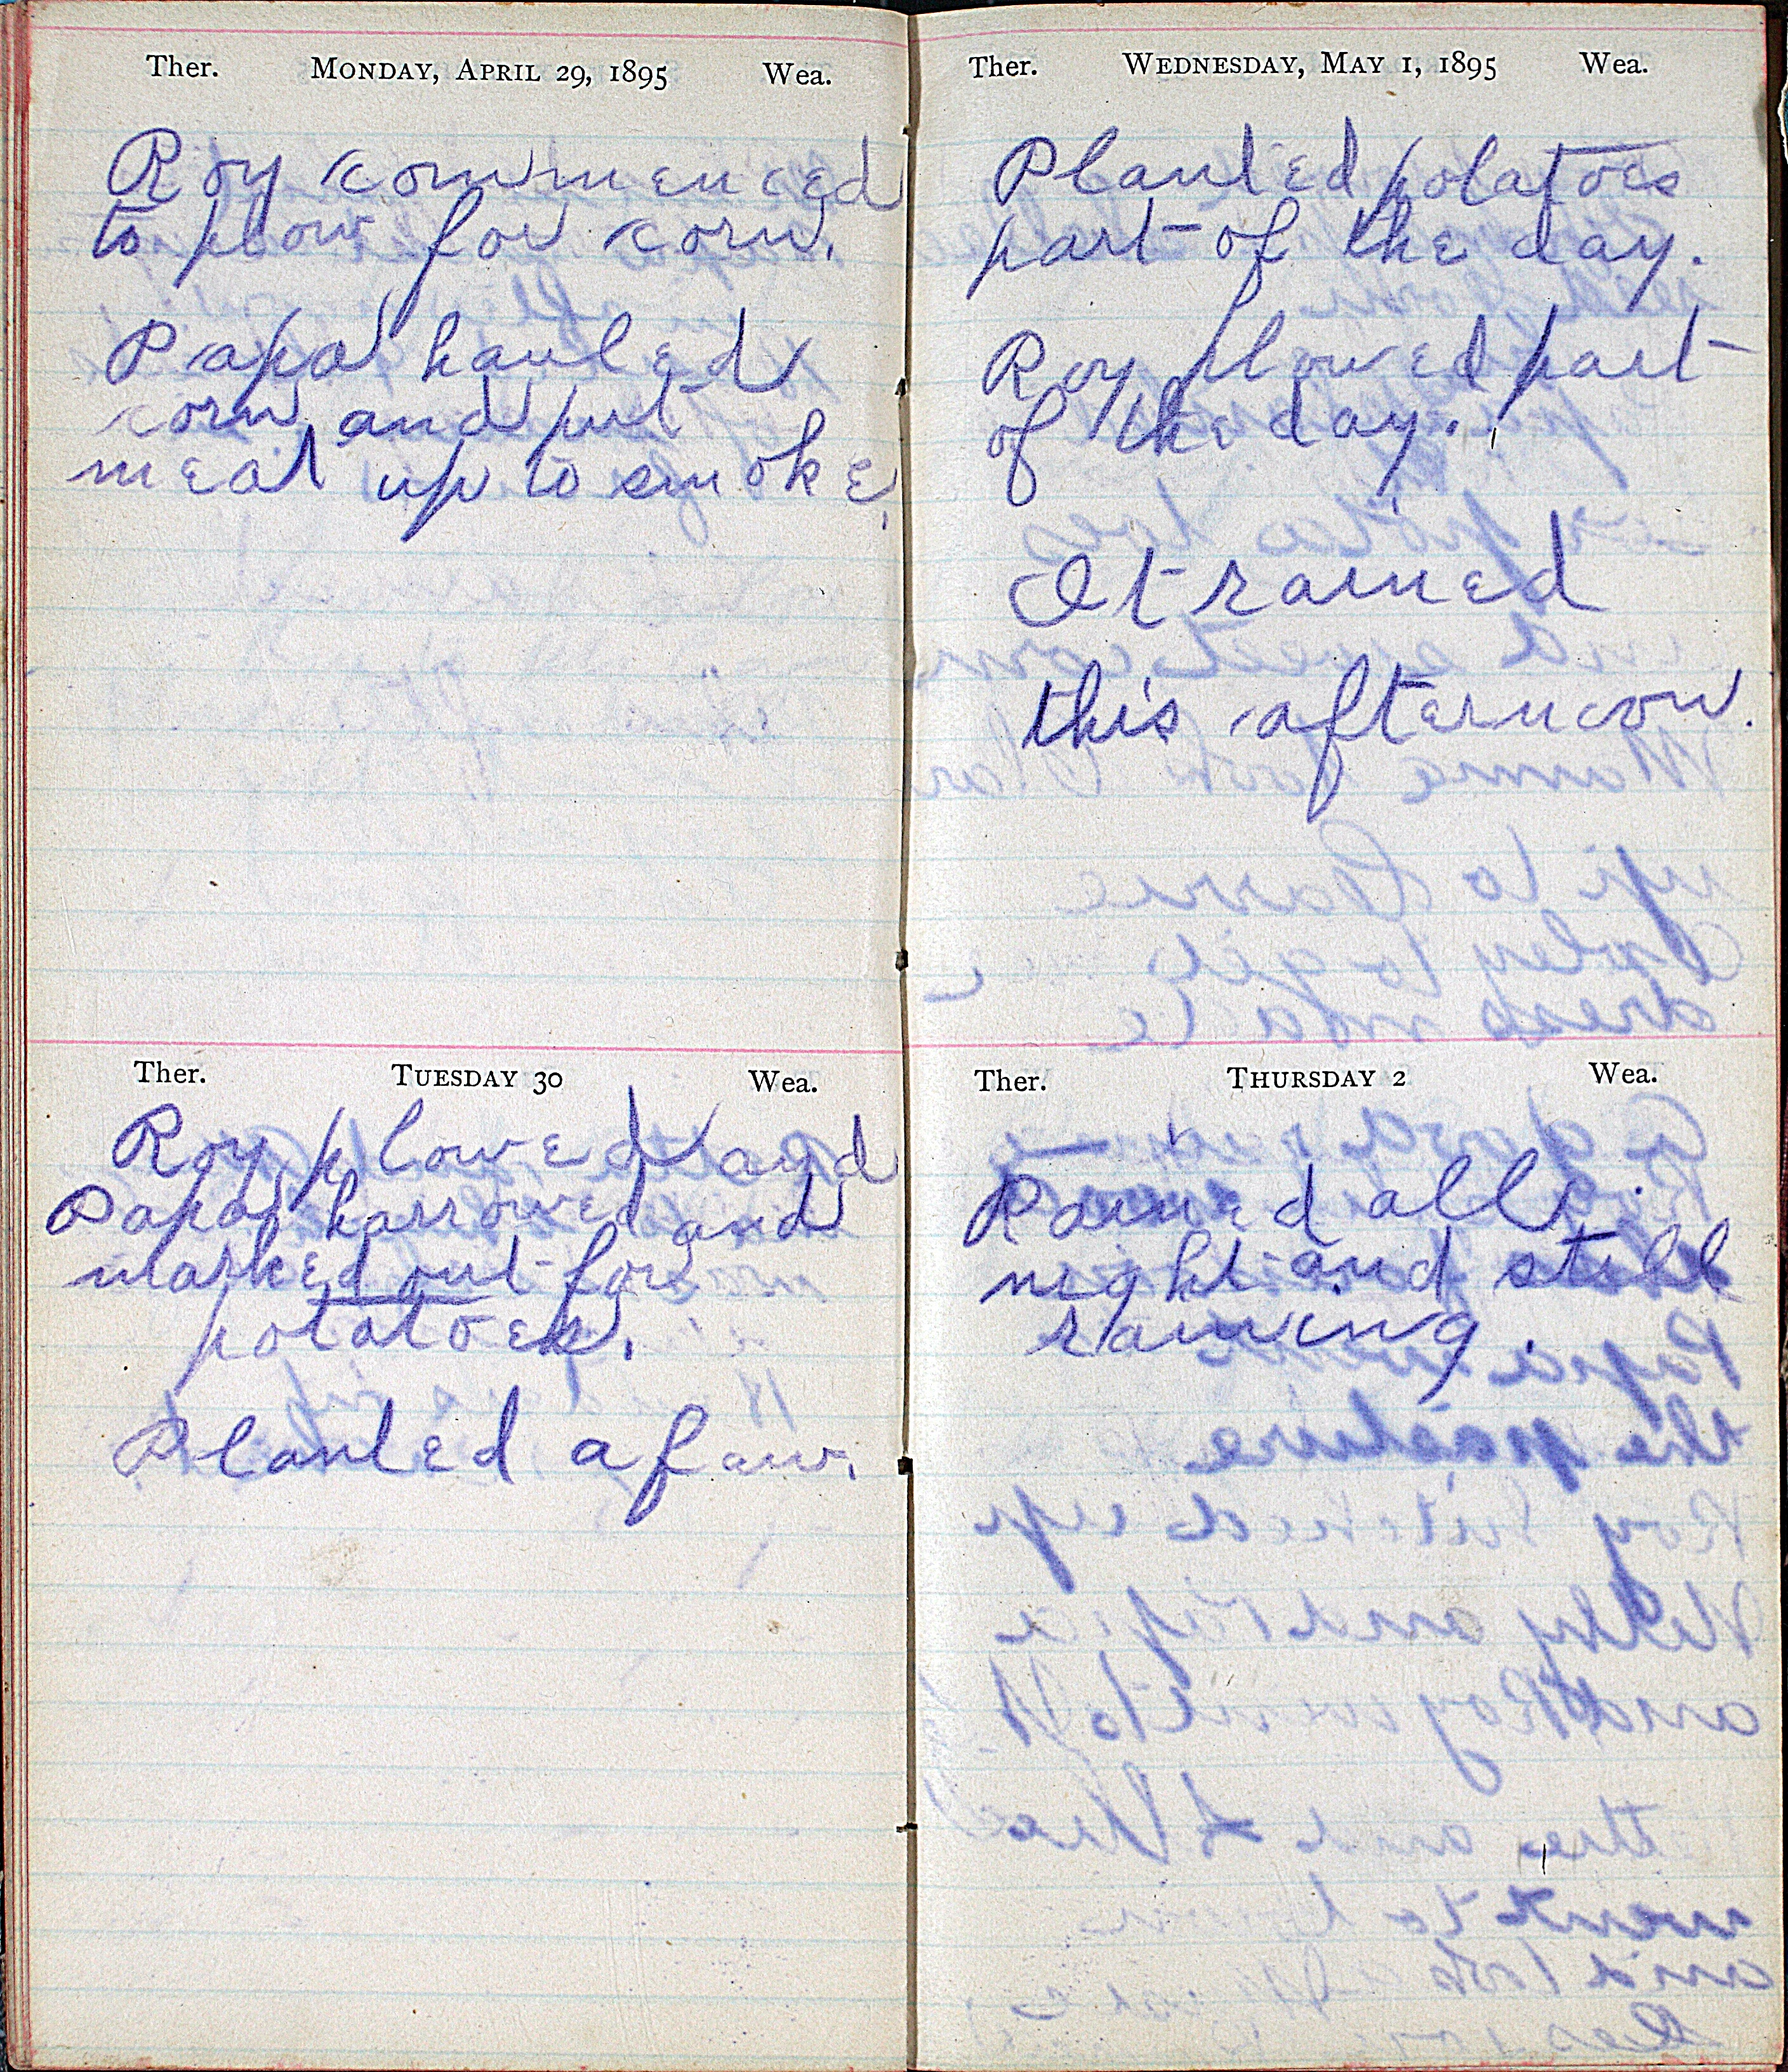 Ther. MONDAY, APRIL 29, 1895 Wea.
Roy commenced
to plow for corn.
Papa hauled
corn and put
meat up to smoke.
Ther. TUESDAY 30 Wea.
Roy plowed and
Papa harrowed and
marked out for
potatoes.
Planted a faw.
Ther. WEDNESDAY, MAY 1, 1895 Wea.
Planted potatoes
part of the day.
Roy plowed part
of the day.
It rained
this afternoon.
Ther. THURSDAY 2 Wea.
Rained all
night and still
raining.